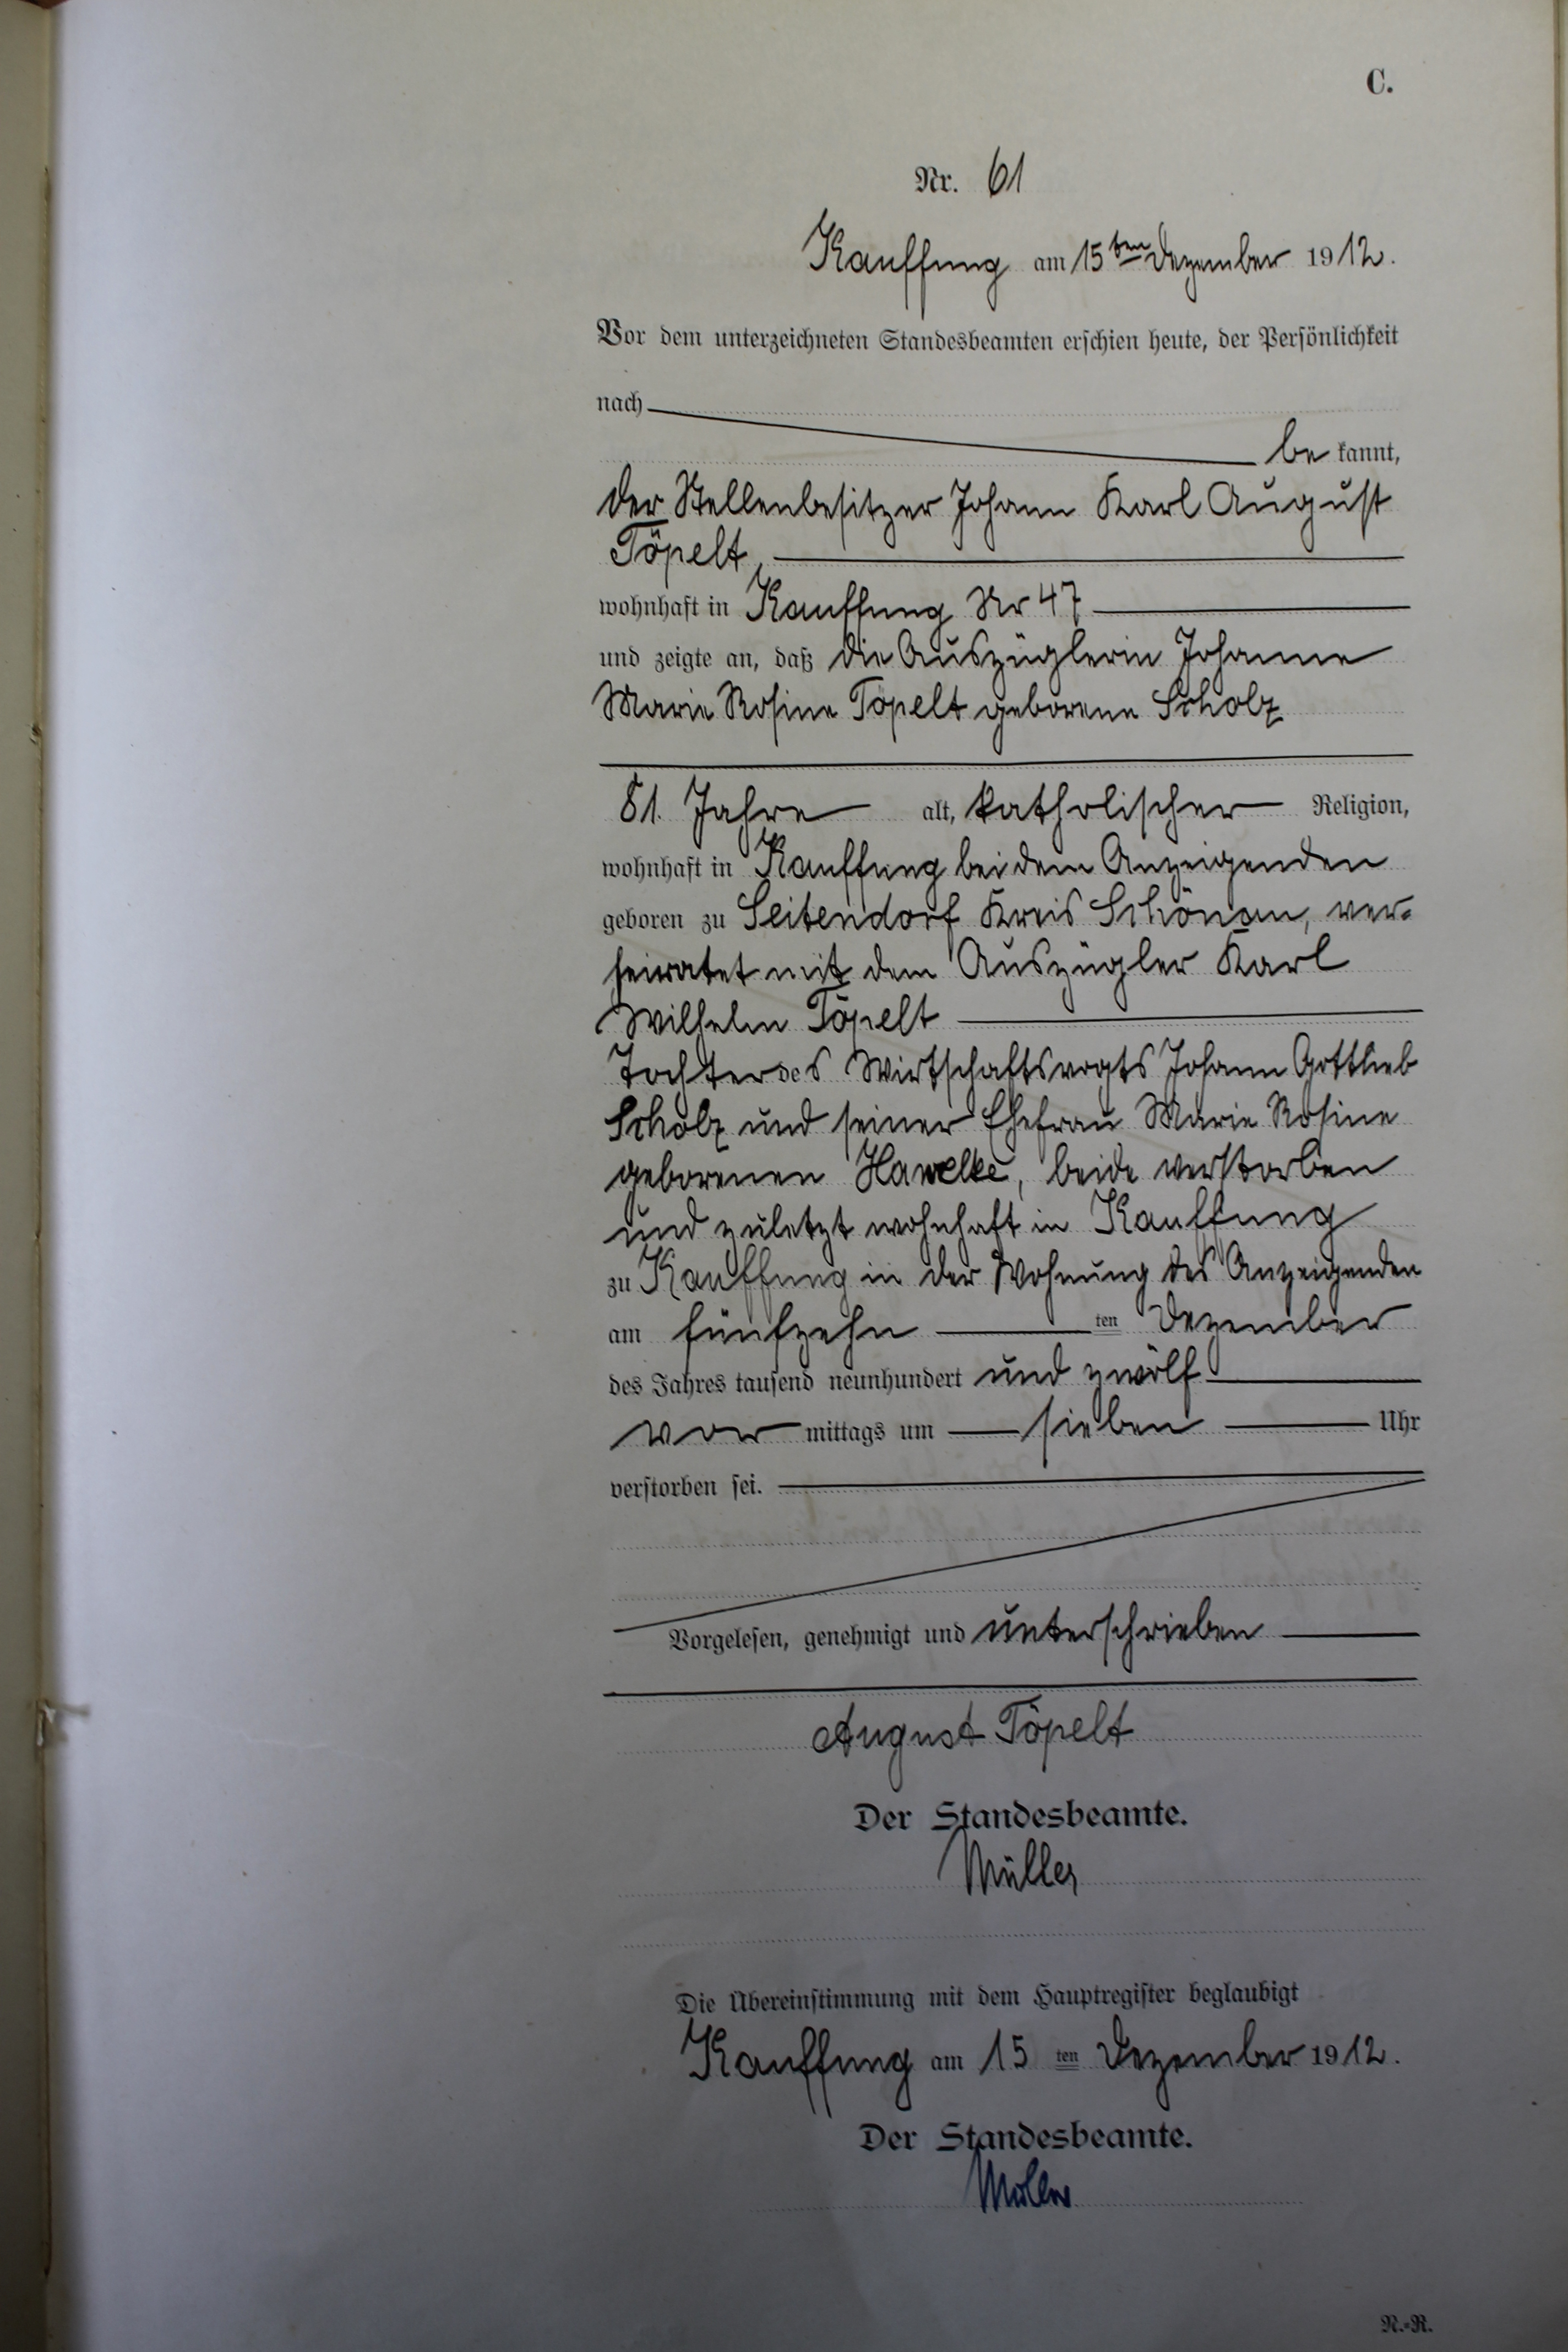 C.
Nr. 61
Kauffung am 15ten Dezember 1912.
Vor dem unterzeichneten Standesbeamten erschien heute, der Persönlichkeit
nach
be kannt,
der Stellenbesitzer Johann Karl August
Töpelt,
wohnhaft in Kauffung Nr 47
und zeigte an, daß die Auszüglerin Johanne
Marie Rosine Töpelt geborene Scholz
81. Jahre alt, katholischer Religion,
wohnhaft in Kauffung bei dem Anzeigenden
geboren zu Seitendorf Kreis Schönau, ver-
heiratet mit dem Auszügler Karl
Wilhelm Töpelt
Tochter des Wirtschaftsvogts Johann Gottlieb
Scholz und seiner Ehefrau Marie Rosine
geborenen Hawelke, beide verstorben
und zuletzt wohnhaft in Kauffung
zu Kauffung in der Wohnung des Anzeigenden
am fünfzehn ten Dezember
des Jahres tausend neunhundert und zwölf
vor mittags um sieben Uhr
verstorben sei.
Vorgelesen, genehmigt und unterschrieben
August Töpelt
Der Standesbeamte.
Müller
Die Übereinstimmung mit dem Hauptregister beglaubigt
Kauffung am 15 ten Dezember 1912.
Der Standesbeamte.
Müller
N.-R.